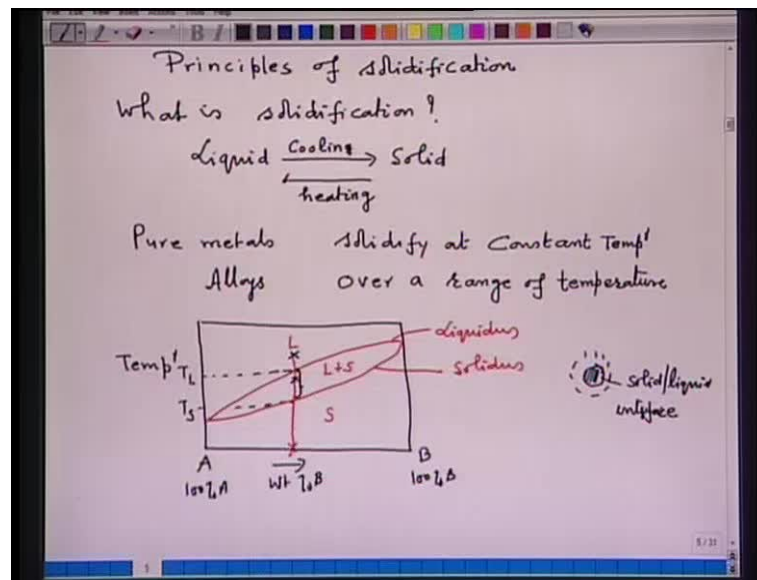 Principles of solidification
What is solidification?
Liquid Cooling Solid
heating
Pure metals solidify at Constant Temp'
Alloys over a range of temperature
L
Liquidus
Temp' TL
L+S
Solidus
TS
S
solid/liquid
interface
A
B
100%A
Wt % B
100% B
5/31
5